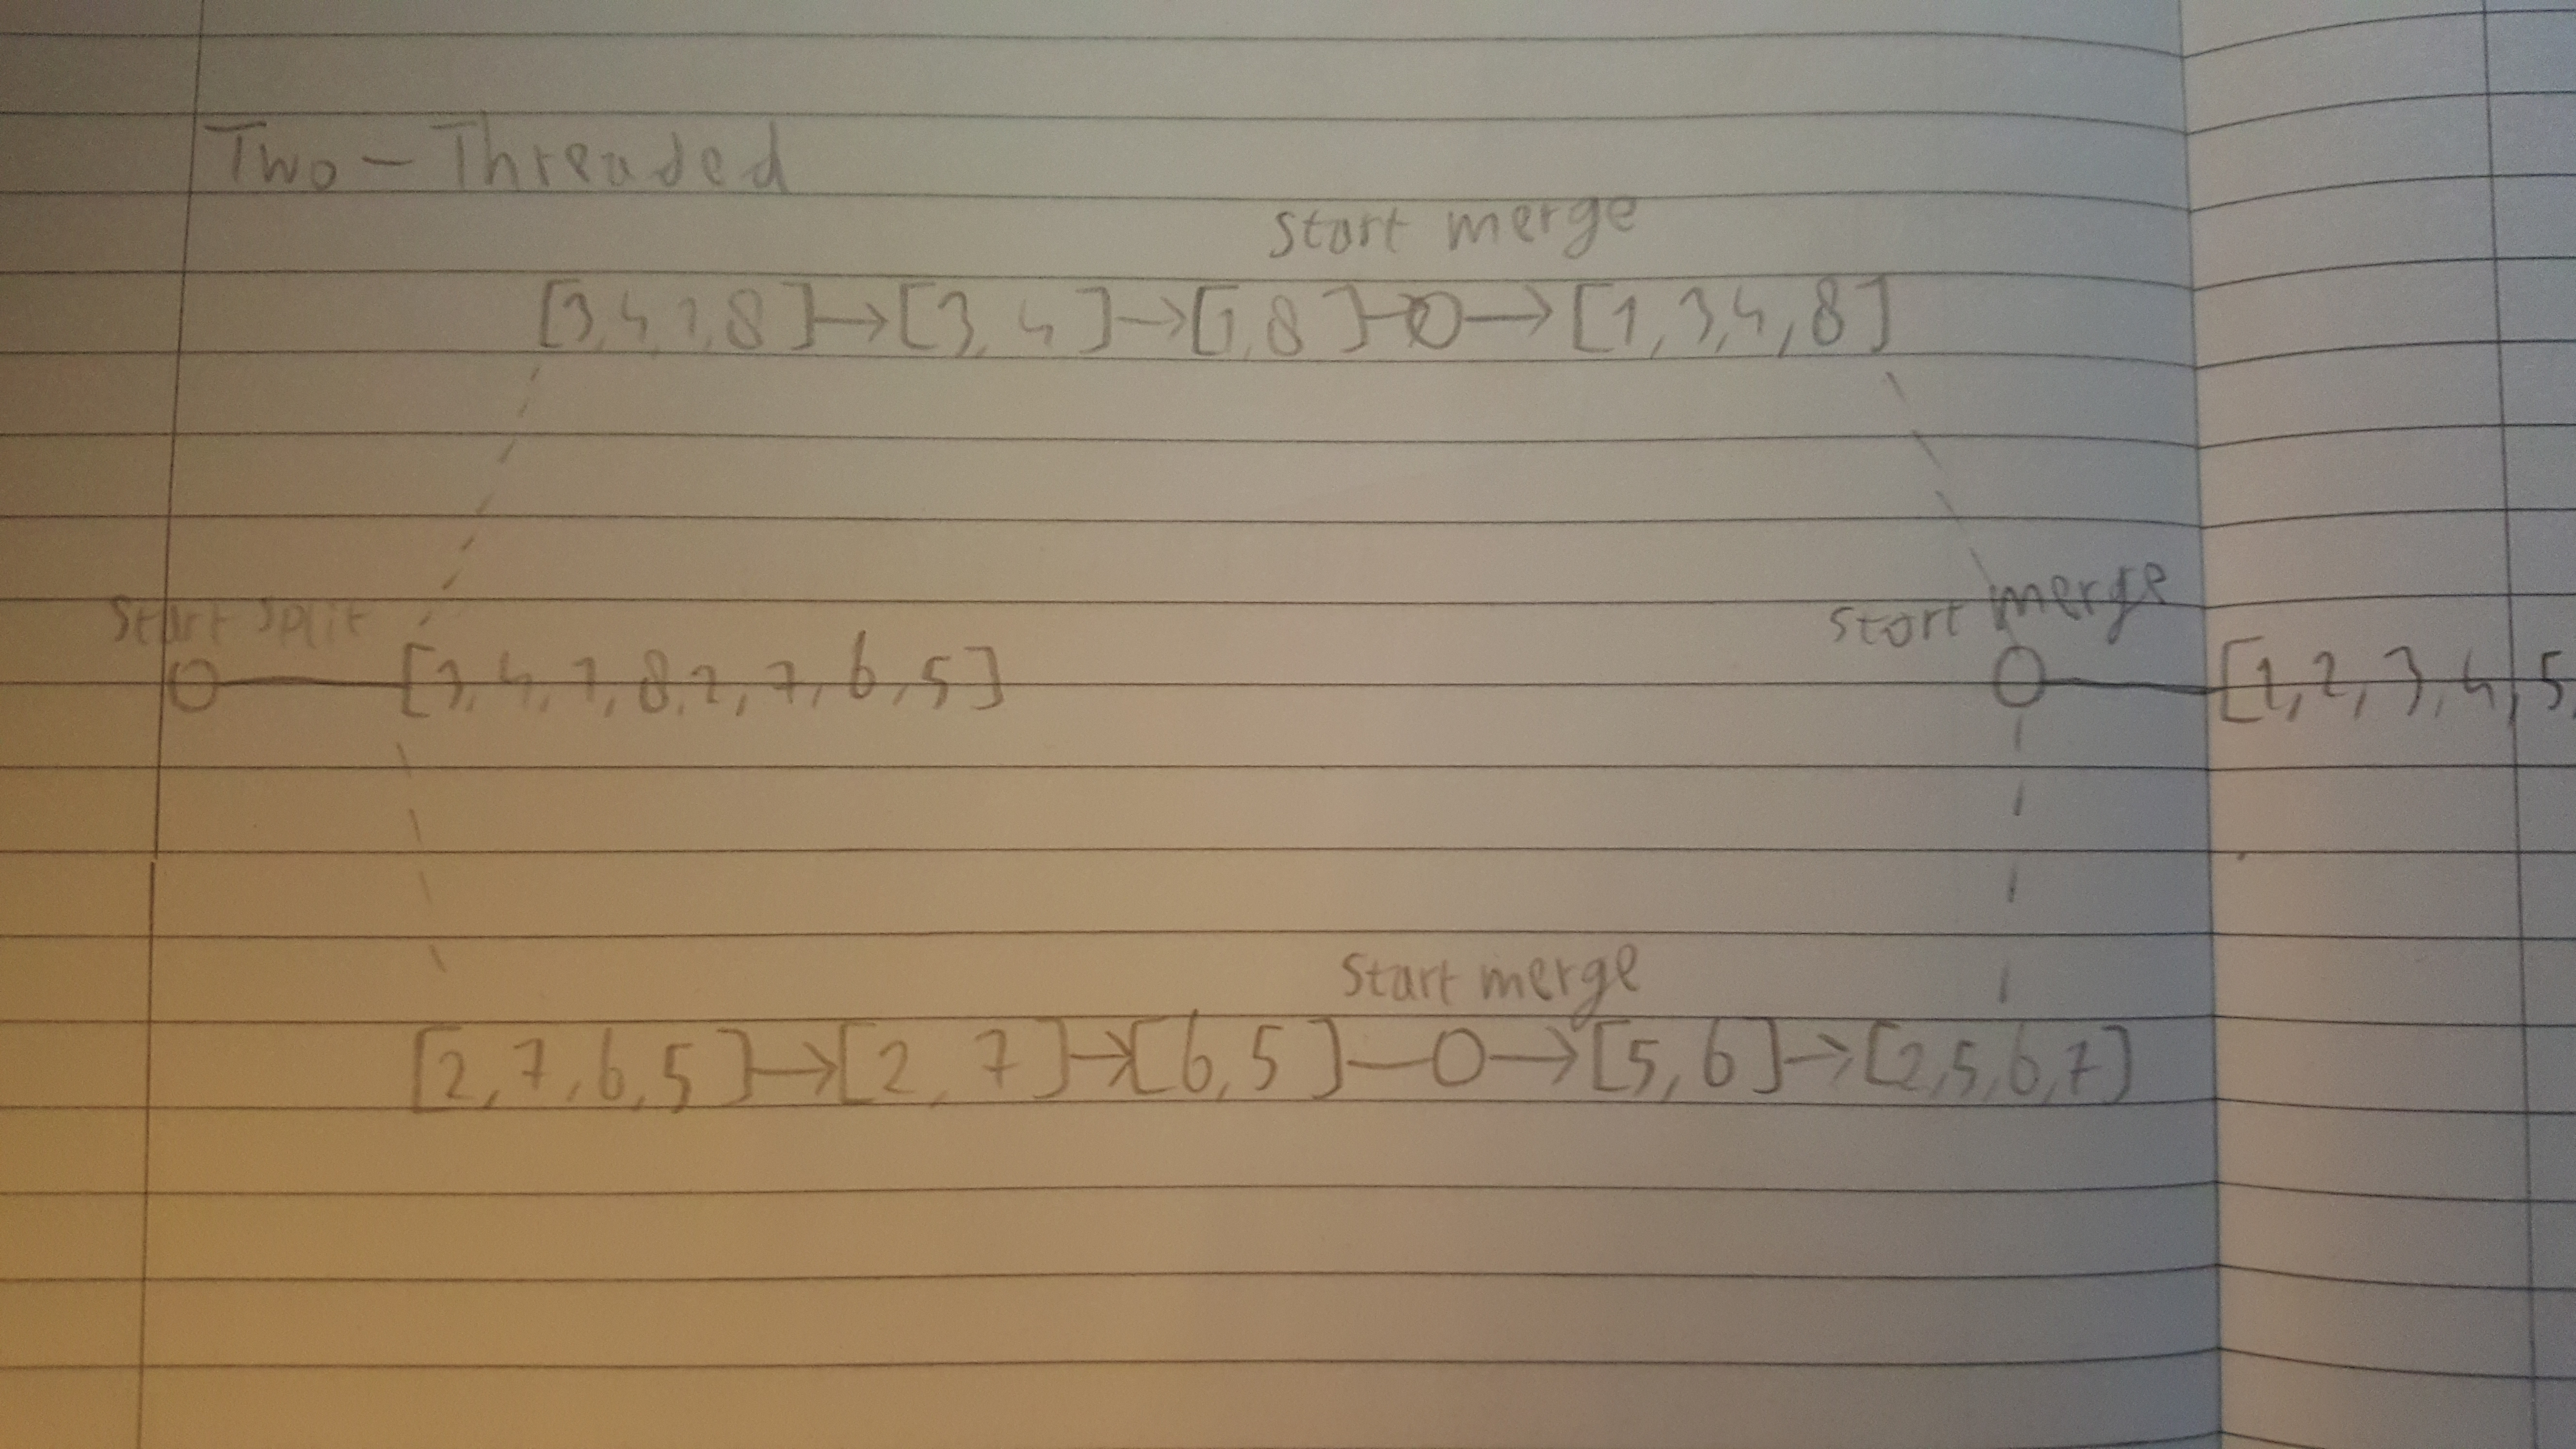 Two-Threaded
start merge
[3,4,1,8]→[3,4]→[1,8]-O→[1,3,4,8]
start split
start merge
O—[3,4,1,8,2,7,6,5] O—[1,2,3,4,5,
start merge
[2,7,6,5]→[2,7]→[6,5]—O→[5,6]→[2,5,6,7]